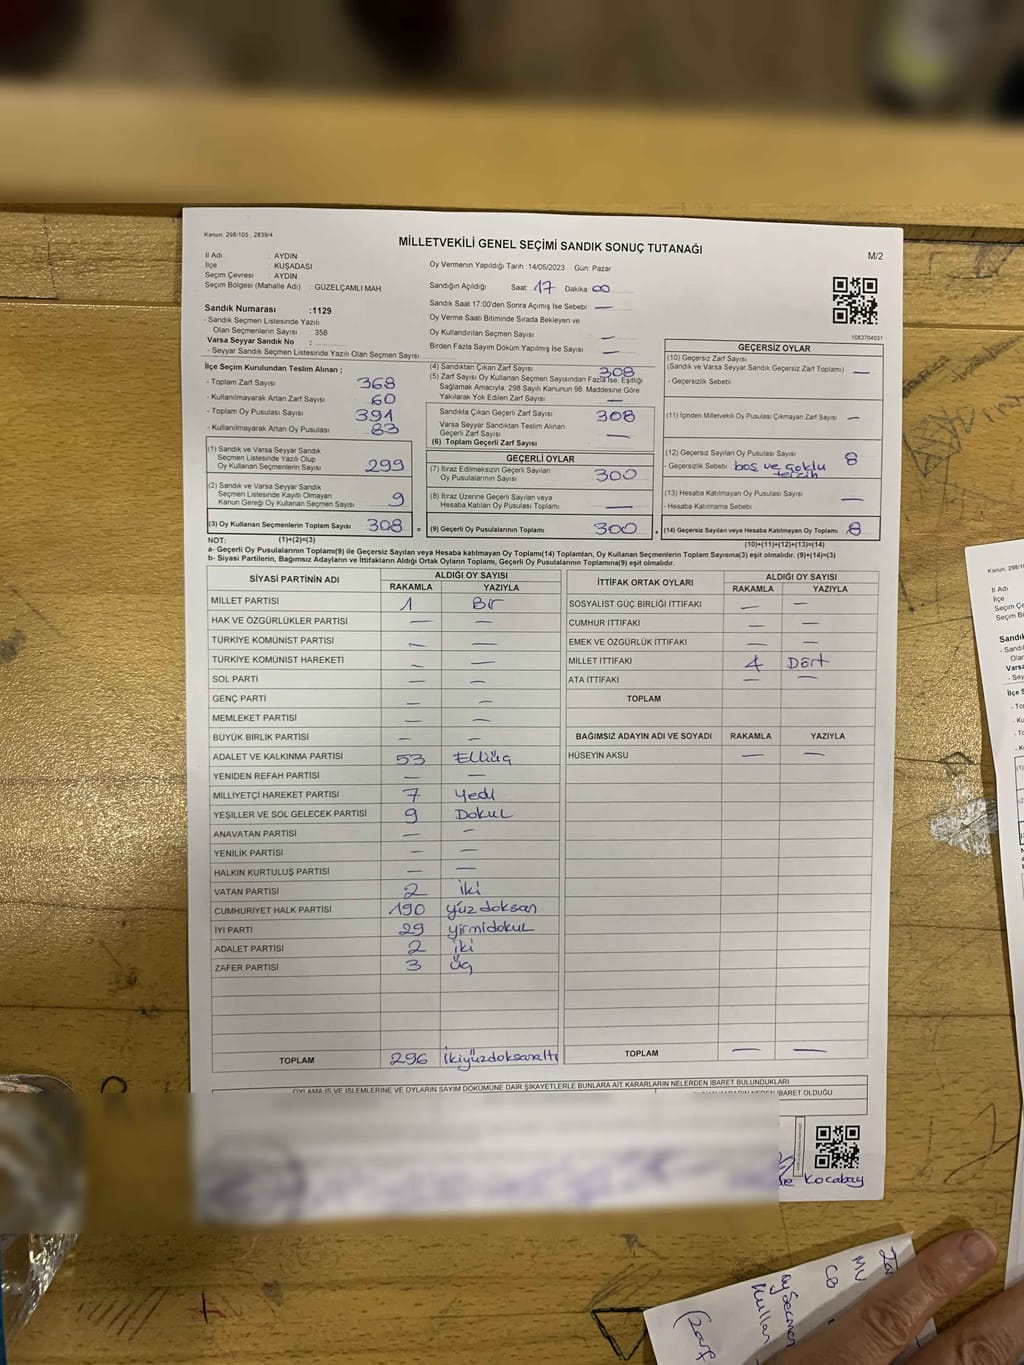 Kanun: 298/105 , 2839/4
MİLLETVEKİLİ GENEL SEÇİMİ SANDIK SONUÇ TUTANAĞI
M/2
İl Adı : AYDIN
İlçe : KUŞADASI
Seçim Çevresi : AYDIN
Seçim Bölgesi (Mahalle Adı) : GÜZELÇAMLI MAH
Oy Vermenin Yapıldığı Tarih :14/05/2023 Gün Pazar
Sandığın Açıldığı Saat: 17 Dakika 00
Sandık Saat 17:00'den Sonra Açımış İse Sebebi —
Oy Verme Saati Bitiminde Sırada Bekleyen ve
Oy Kullandırılan Seçmen Sayısı —
Birden Fazla Sayım Döküm Yapılmış İse Sayısı —
1083704031
Sandık Numarası :1129
- Sandık Seçmen Listesinde Yazılı
Olan Seçmenlerin Sayısı : 358
Varsa Seyyar Sandık No :
- Seyyar Sandık Seçmen Listesinde Yazılı Olan Seçmen Sayısı
İlçe Seçim Kurulundan Teslim Alınan ;
- Toplam Zarf Sayısı 368
- Kullanılmayarak Artan Zarf Sayısı 60
- Toplam Oy Pusulası Sayısı 391
- Kullanılmayarak Artan Oy Pusulası 83
(1) Sandık ve Varsa Seyyar Sandık
Seçmen Listesinde Yazılı Olup
Oy Kullanan Seçmenlerin Sayısı 299
(2) Sandık ve Varsa Seyyar Sandık
Seçmen Listesinde Kayıtlı Olmayan
Kanun Gereği Oy Kullanan Seçmen Sayısı 9
(3) Oy Kullanan Seçmenlerin Toplam Sayısı 308 =
(1)+(2)=(3)
(4) Sandıktan Çıkan Zarf Sayısı 308
(5) Zarf Sayısı Oy Kullanan Seçmen Sayısından Fazla İse, Eşitliği
Sağlamak Amacıyla, 298 Sayılı Kanunun 98. Maddesine Göre
Yakılarak Yok Edilen Zarf Sayısı —
Sandıkta Çıkan Geçerli Zarf Sayısı 308
Varsa Seyyar Sandıktan Teslim Alınan
Geçerli Zarf Sayısı —
(6) Toplam Geçerli Zarf Sayısı
GEÇERLİ OYLAR
(7) İtiraz Edilmeksizin Geçerli Sayılan
Oy Pusulalarının Sayısı 300
(8) İtiraz Üzerine Geçerli Sayılan veya
Hesaba Katılan Oy Pusulası Toplamı —
(9) Geçerli Oy Pusulalarının Toplamı 300 +
GEÇERSİZ OYLAR
(10) Geçersiz Zarf Sayısı
(Sandık ve Varsa Seyyar Sandık Geçersiz Zarf Toplamı) —
- Geçersizlik Sebebi
(11) İçinden Milletvekili Oy Pusulası Çıkmayan Zarf Sayısı —
(12) Geçersiz Sayılan Oy Pusulası Sayısı 8
- Geçersizlik Sebebi boş ve çoklu
tercih
(13) Hesaba Katılmayan Oy Pusulası Sayısı —
- Hesaba Katılmama Sebebi
(14) Geçersiz Sayılan veya Hesaba Katılmayan Oy Toplamı 8
(10)+(11)+(12)+(13)=(14)
NOT:
a- Geçerli Oy Pusulalarının Toplamı(9) ile Geçersiz Sayılan veya Hesaba katılmayan Oy Toplamı(14) Toplamları, Oy Kullanan Seçmenlerin Toplam Sayısına(3) eşit olmalıdır. (9)+(14)=(3)
b- Siyasi Partilerin, Bağımsız Adayların ve İttifakların Aldığı Ortak Oyların Toplamı, Geçerli Oy Pusulalarının Toplamına(9) eşit olmalıdır.
SİYASİ PARTİNİN ADI ALDIĞI OY SAYISI
RAKAMLA YAZIYLA
MİLLET PARTİSİ 1 Bir
HAK VE ÖZGÜRLÜKLER PARTİSİ — —
TÜRKİYE KOMÜNİST PARTİSİ — —
TÜRKİYE KOMÜNİST HAREKETİ — —
SOL PARTİ — —
GENÇ PARTİ — —
MEMLEKET PARTİSİ — —
BÜYÜK BİRLİK PARTİSİ — —
ADALET VE KALKINMA PARTİSİ 53 Elliüç
YENİDEN REFAH PARTİSİ — —
MİLLİYETÇİ HAREKET PARTİSİ 7 Yedi
YEŞİLLER VE SOL GELECEK PARTİSİ 9 Dokuz
ANAVATAN PARTİSİ — —
YENİLİK PARTİSİ — —
HALKIN KURTULUŞ PARTİSİ — —
VATAN PARTİSİ 2 iki
CUMHURİYET HALK PARTİSİ 190 yüzdoksan
İYİ PARTİ 29 yirmidokuz
ADALET PARTİSİ 2 iki
ZAFER PARTİSİ 3 üç
TOPLAM 296 ikiyüzdoksanaltı
İTTİFAK ORTAK OYLARI ALDIĞI OY SAYISI
RAKAMLA YAZIYLA
SOSYALİST GÜÇ BİRLİĞİ İTTİFAKI — —
CUMHUR İTTİFAKI — —
EMEK VE ÖZGÜRLÜK İTTİFAKI — —
MİLLET İTTİFAKI 4 Dört
ATA İTTİFAKI — —
TOPLAM
BAĞIMSIZ ADAYIN ADI VE SOYADI RAKAMLA YAZIYLA
HÜSEYİN AKSU — —
TOPLAM — —
OYLAMA İŞ VE İŞLEMLERİNE VE OYLARIN SAYIM DÖKÜMÜNE DAİR ŞİKAYETLERLE BUNLARA AİT KARARLARIN NELERDEN İBARET BULUNDUKLARI
İBARET OLDUĞU
Kocabay
Kanun: 298/1
İl Adı
İlçe
Seçim Çe
Seçim Bö
Sandı
- Sandı
Olan
Varsa
- Sey
İlçe S
MV
CB
oy Seçmen
Kullan